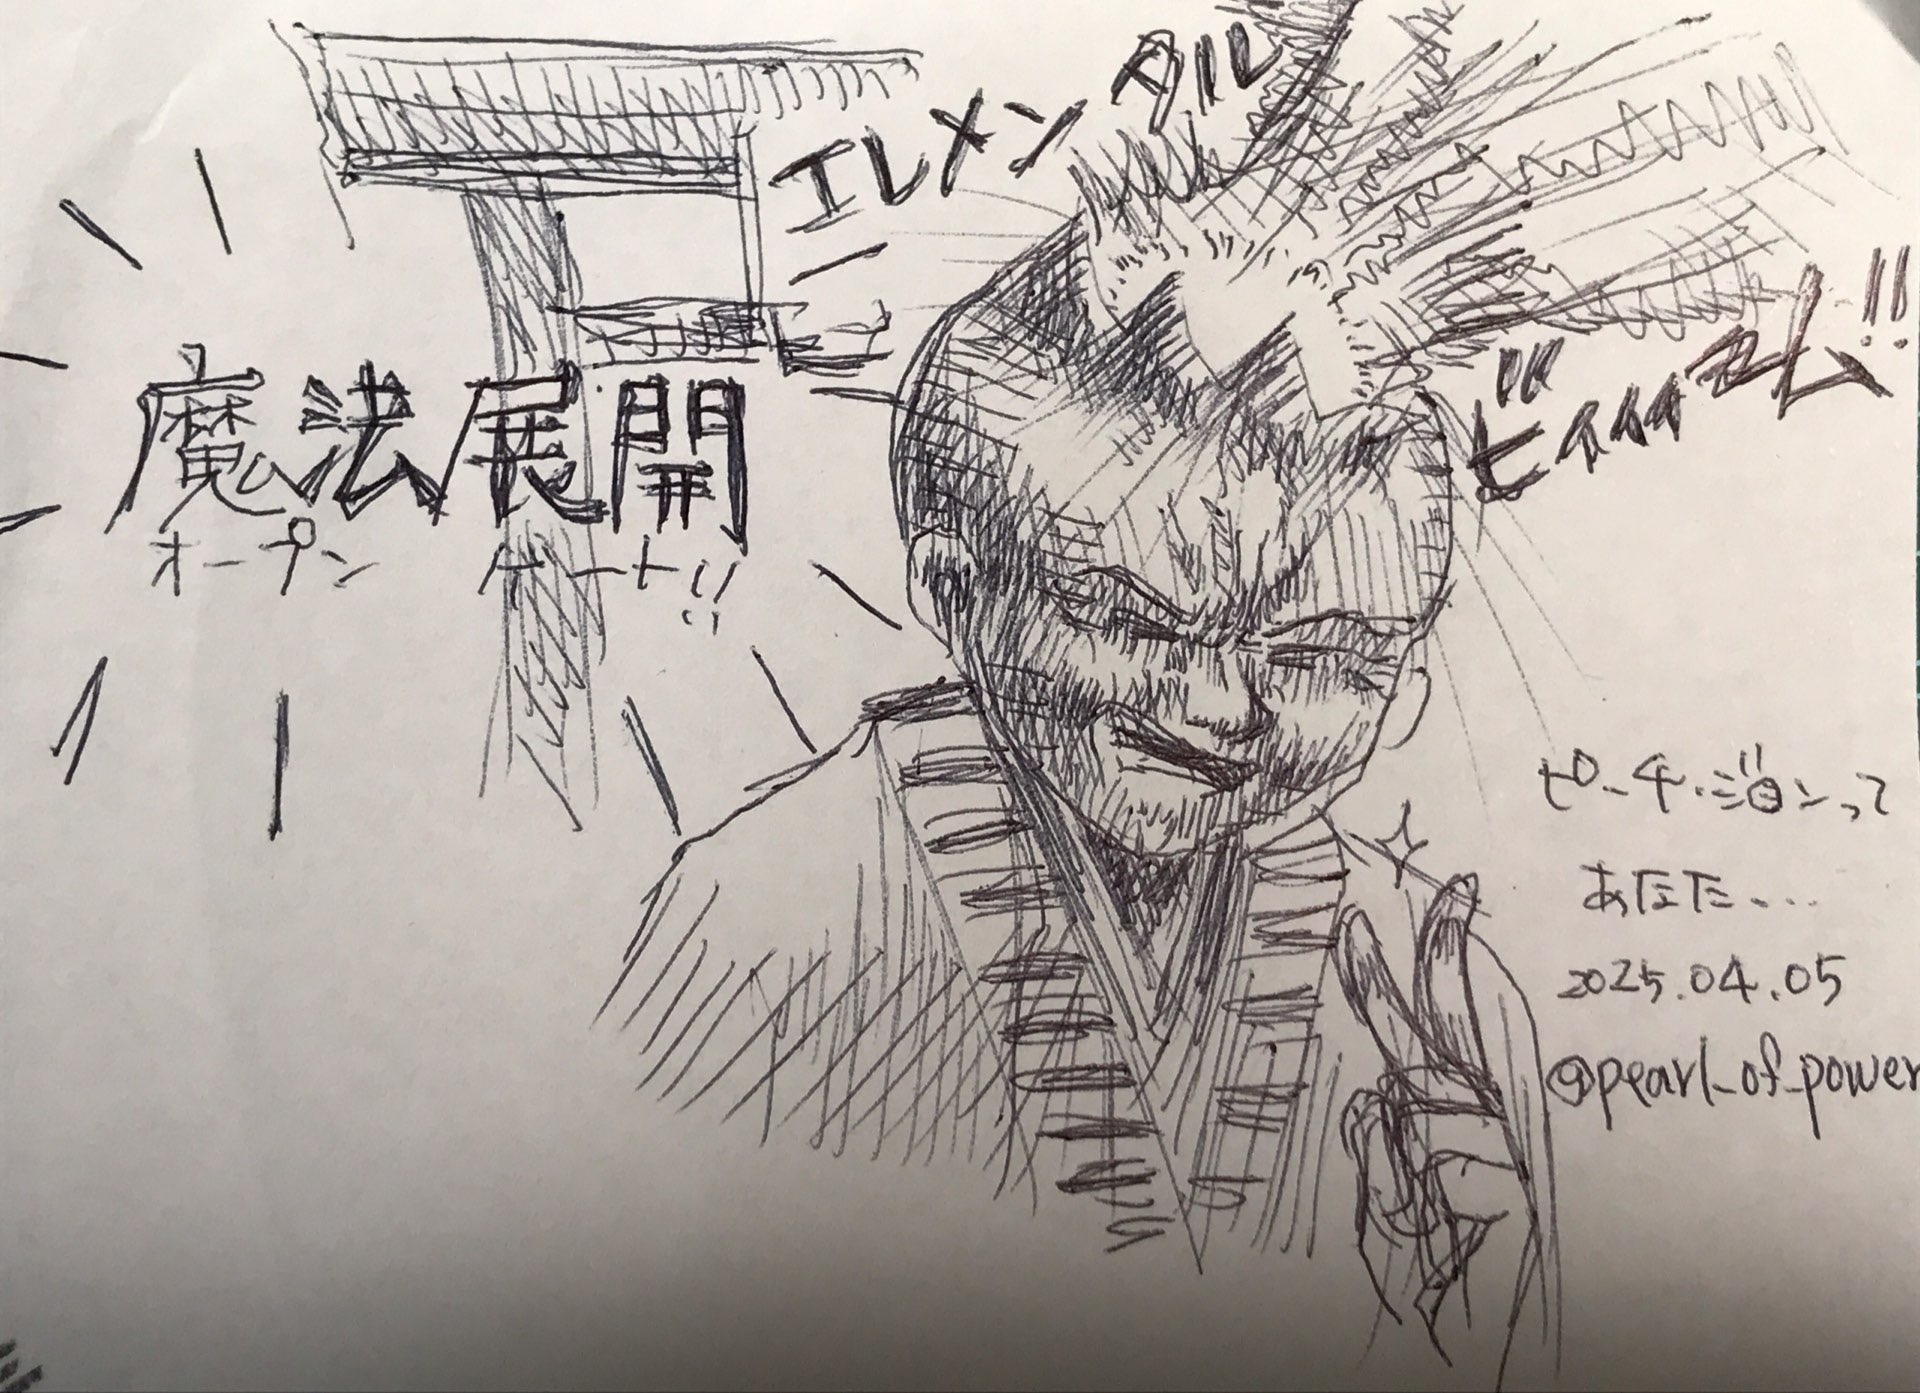 エレメンタル
ビィィィーム!!
魔法展開
オープンゲート!!
ピーチ・ジョンって
あなた...
2025.04.05
@pearl_of_power